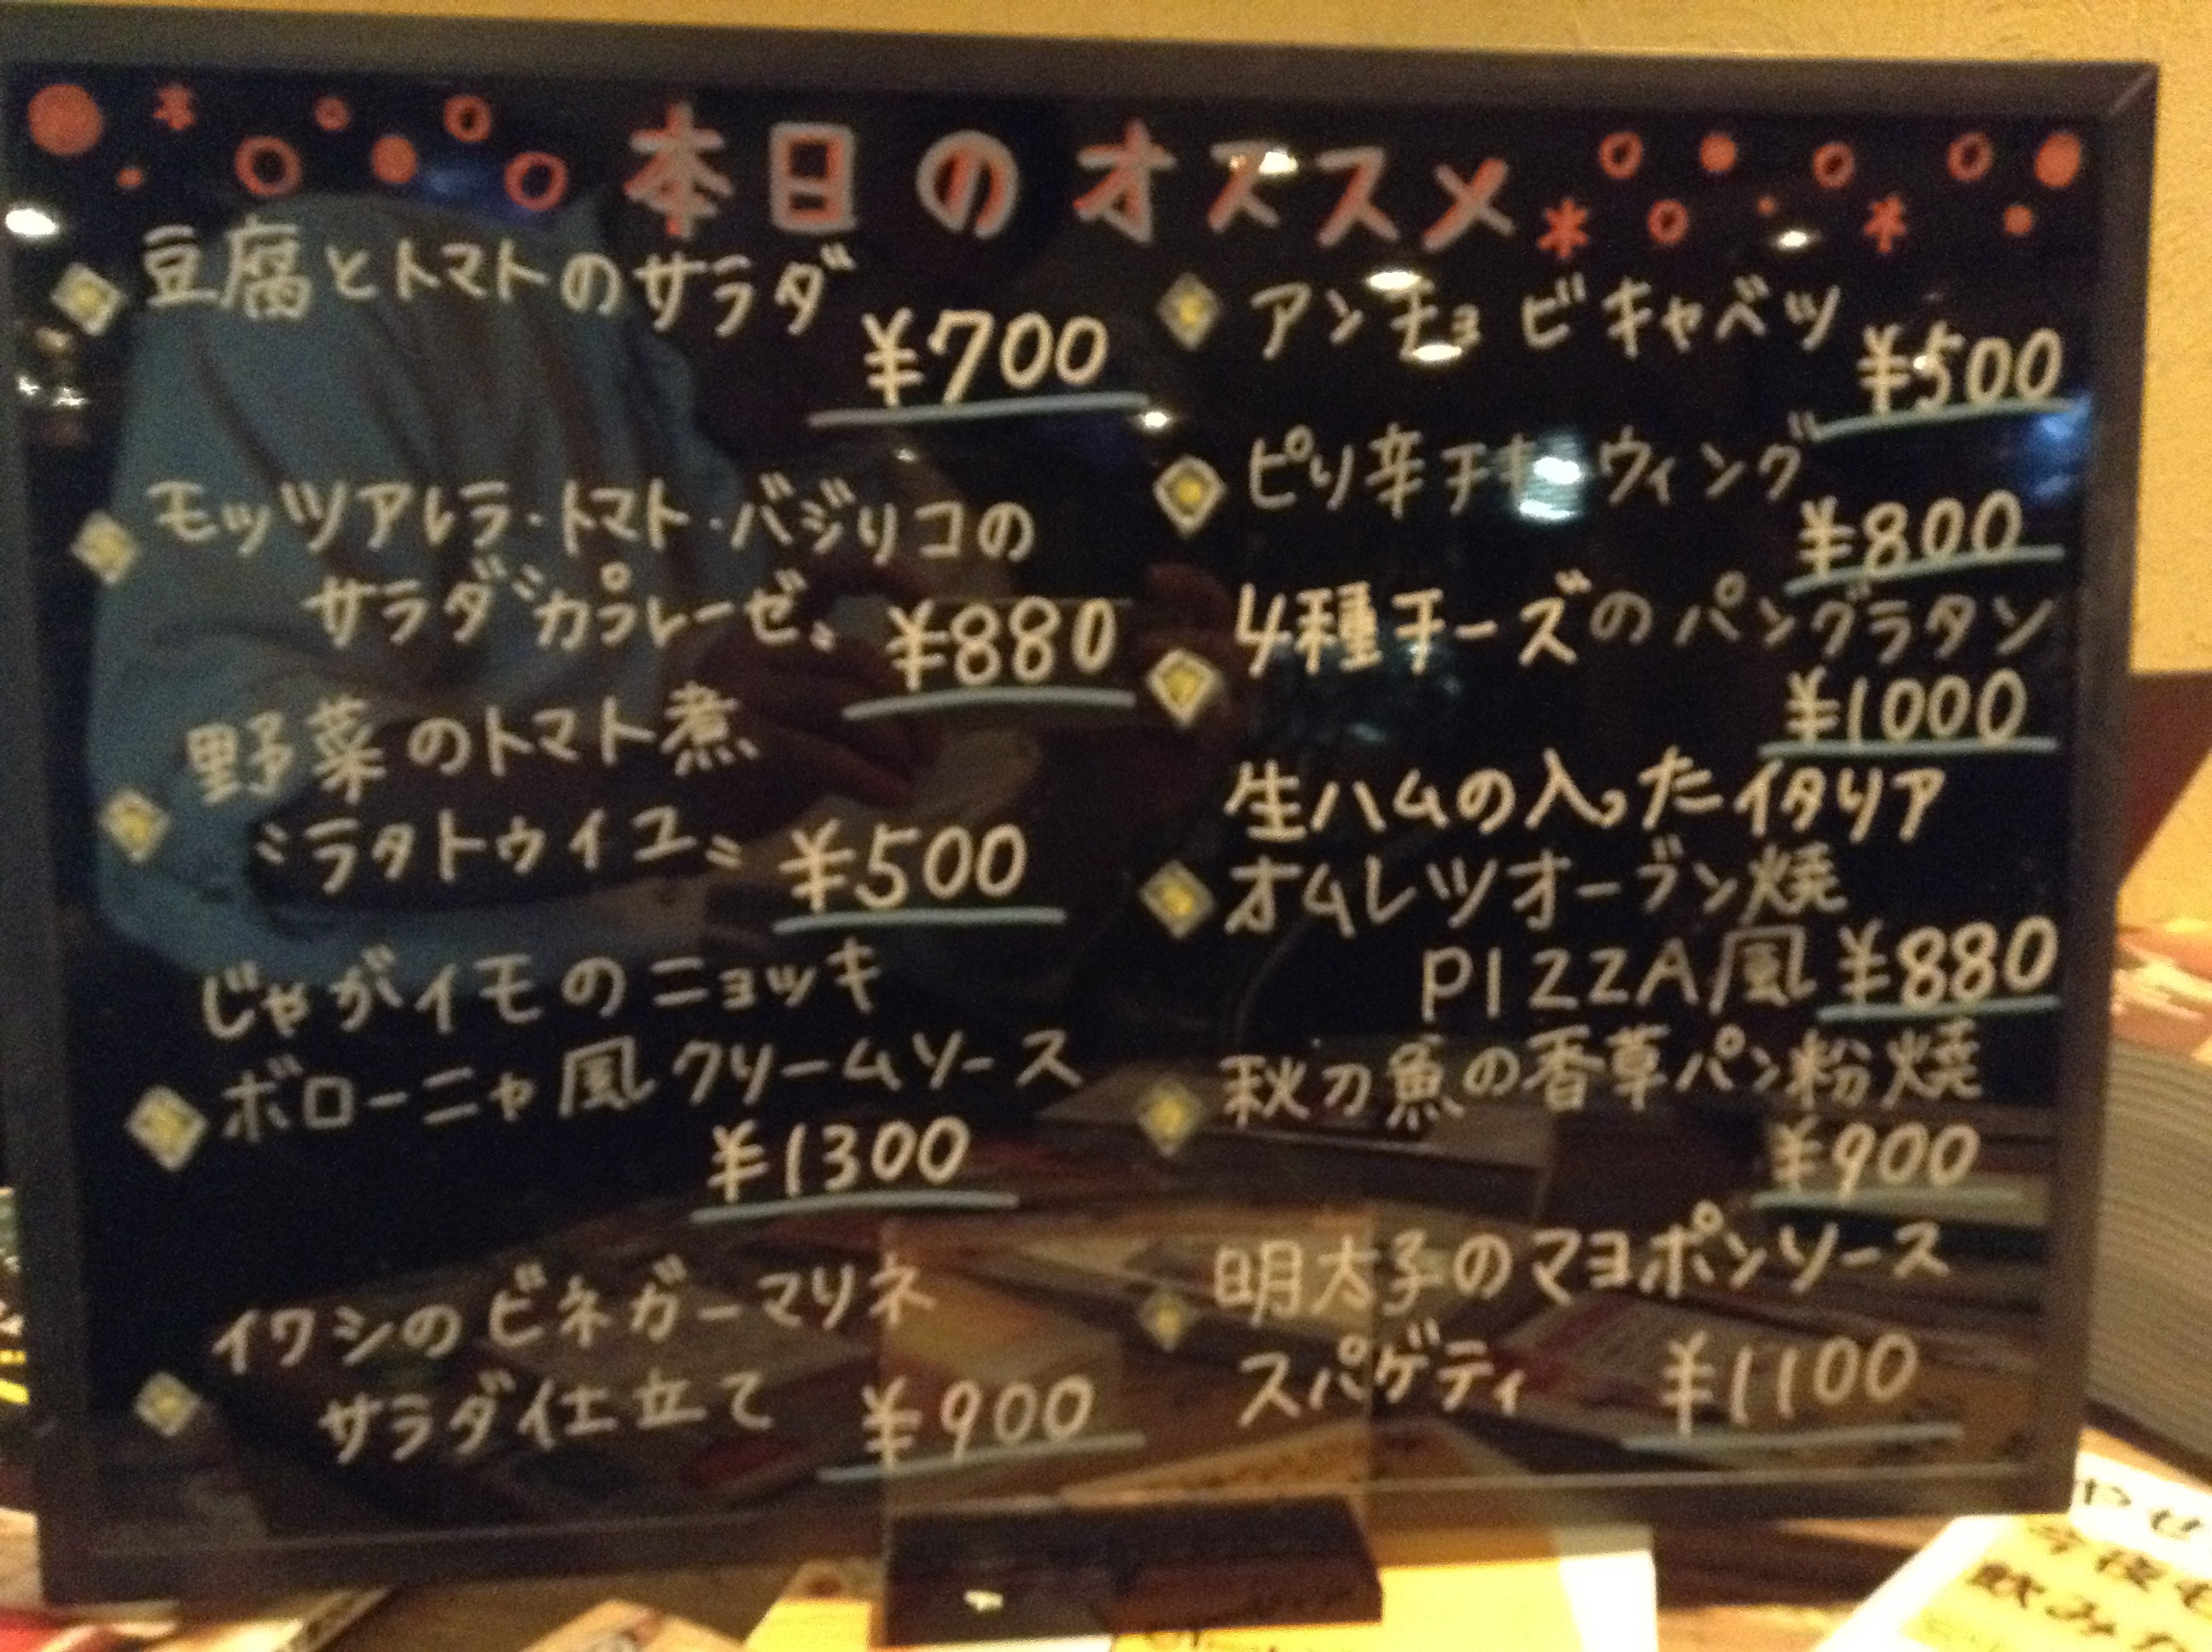 本日のオススメ
豆腐とトマトのサラダ
¥700
モッツアレラ・トマト・バジリコの
サラダ〝カプレーゼ〟
¥880
野菜のトマト煮
〝ラタトゥイユ〟 ¥500
じゃがイモのニョッキ
ボローニャ風クリームソース
¥1300
イワシのビネガーマリネ
サラダ仕立て ¥900
アンチョビキャベツ
¥500
ピリ辛チキンウィング
¥800
4種チーズのパングラタン
¥1000
生ハムの入ったイタリア
オムレツオーブン焼
PIZZA風 ¥880
秋刀魚の香草パン粉焼
¥900
明太子のマヨポンソース
スパゲティ ¥1100